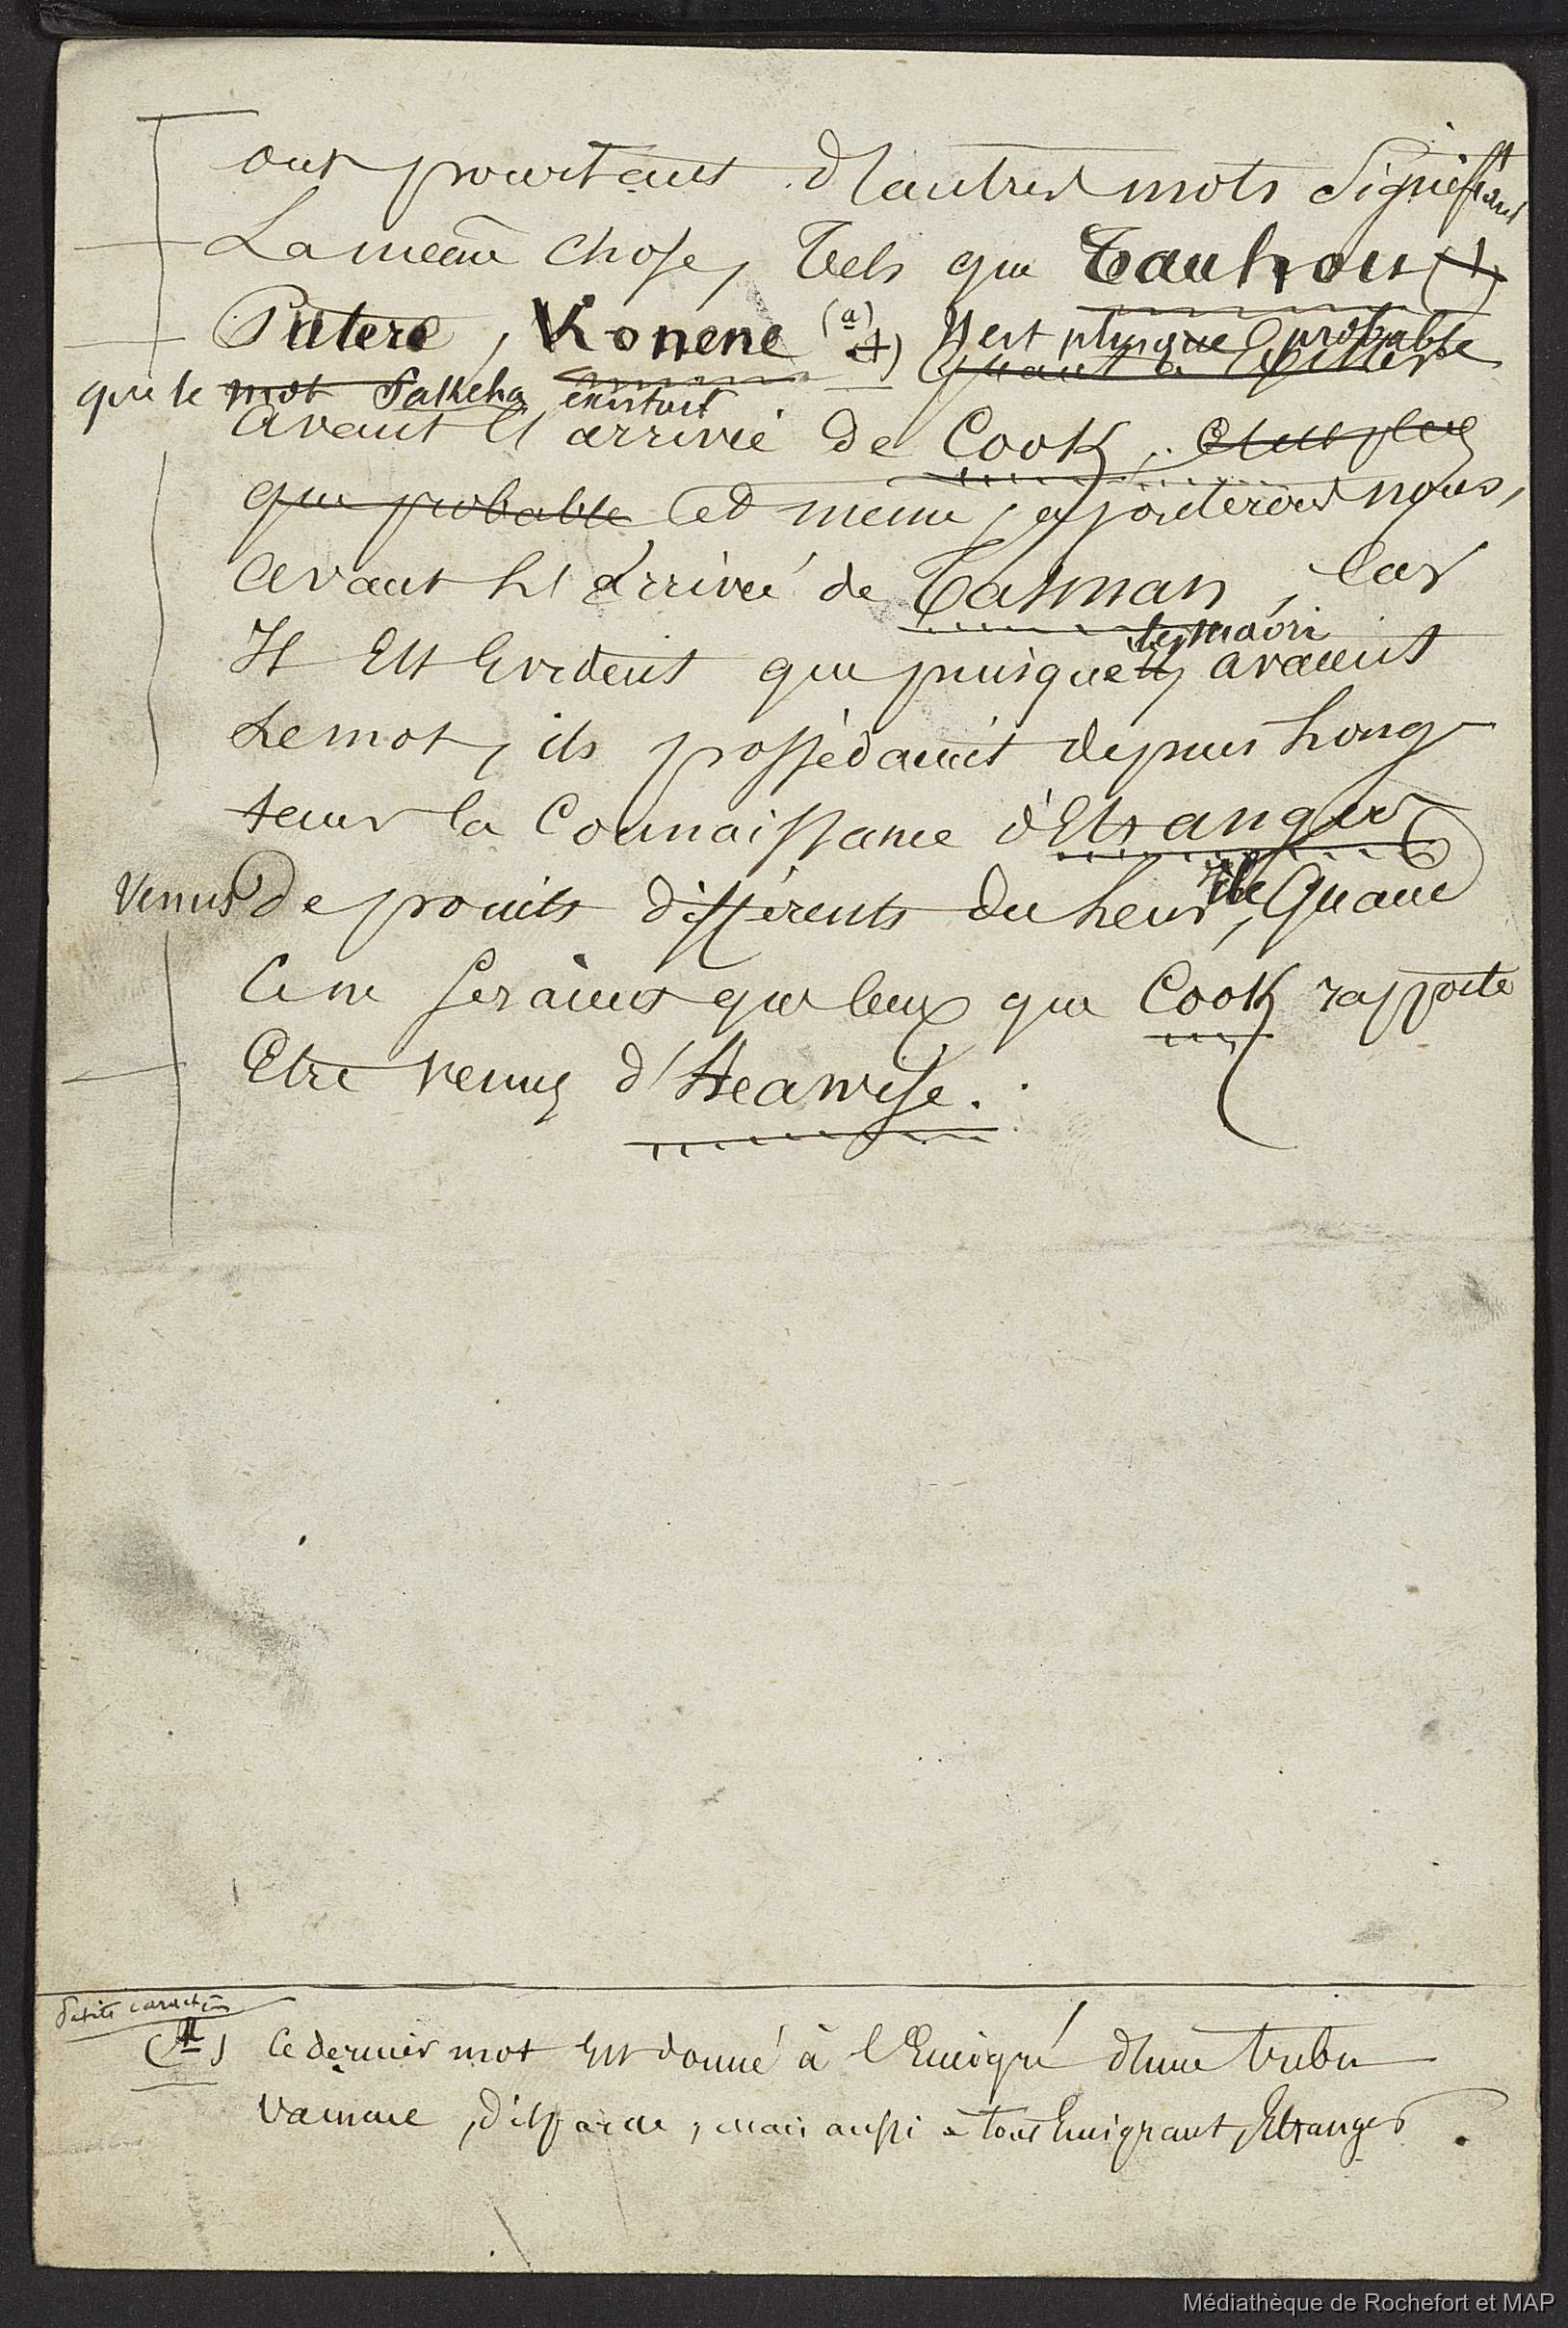 ont pourtant d'autres mots signifiant
La même chose, Tels que Tauhou (1)
Patere, Konene (a) Il est plus que probable
que le mot Pakeha existait
avant l'arrivée de Cook, et est plus
que probable et même, ajouterons nous,
avant l'arrivée de Tasman, Car
Il Est Evident que puisque les maori avaient
Le mot, ils possédaient depuis Long
tems la Connaissance d'Etrangers
Venus De points différents du leur, île Quand
Ce ne seraient que ceux que Cook rapporte
Etre venus d'Heawise.
Petits caractères
(a) Ce dernier mot Est donné à l'Emigré d'une tribu
vaincue, mais aussi à tout Emigrant, Etranger.
Médiathèque de Rochefort et MAP